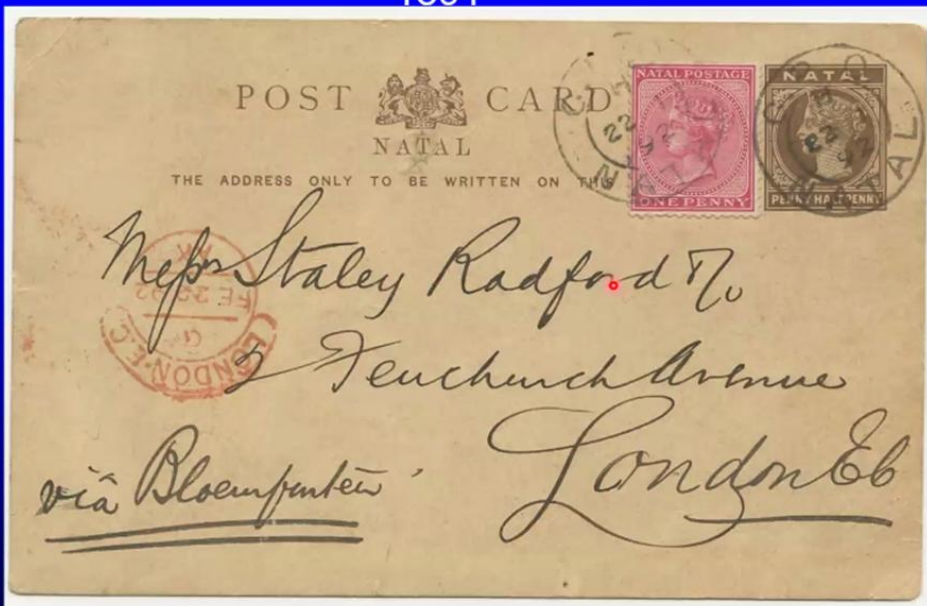 POST CARD
NATAL
THE ADDRESS ONLY TO BE WRITTEN ON THIS
NATAL POSTAGE
ONE PENNY
NATAL
PENNY HALFPENNY
G.P.O
22
92
NATAL
Messrs Staley Radford & Co
2 Fenchurch Avenue
London EC
via Bloemfontein
LONDON.E.C
FE 22 92